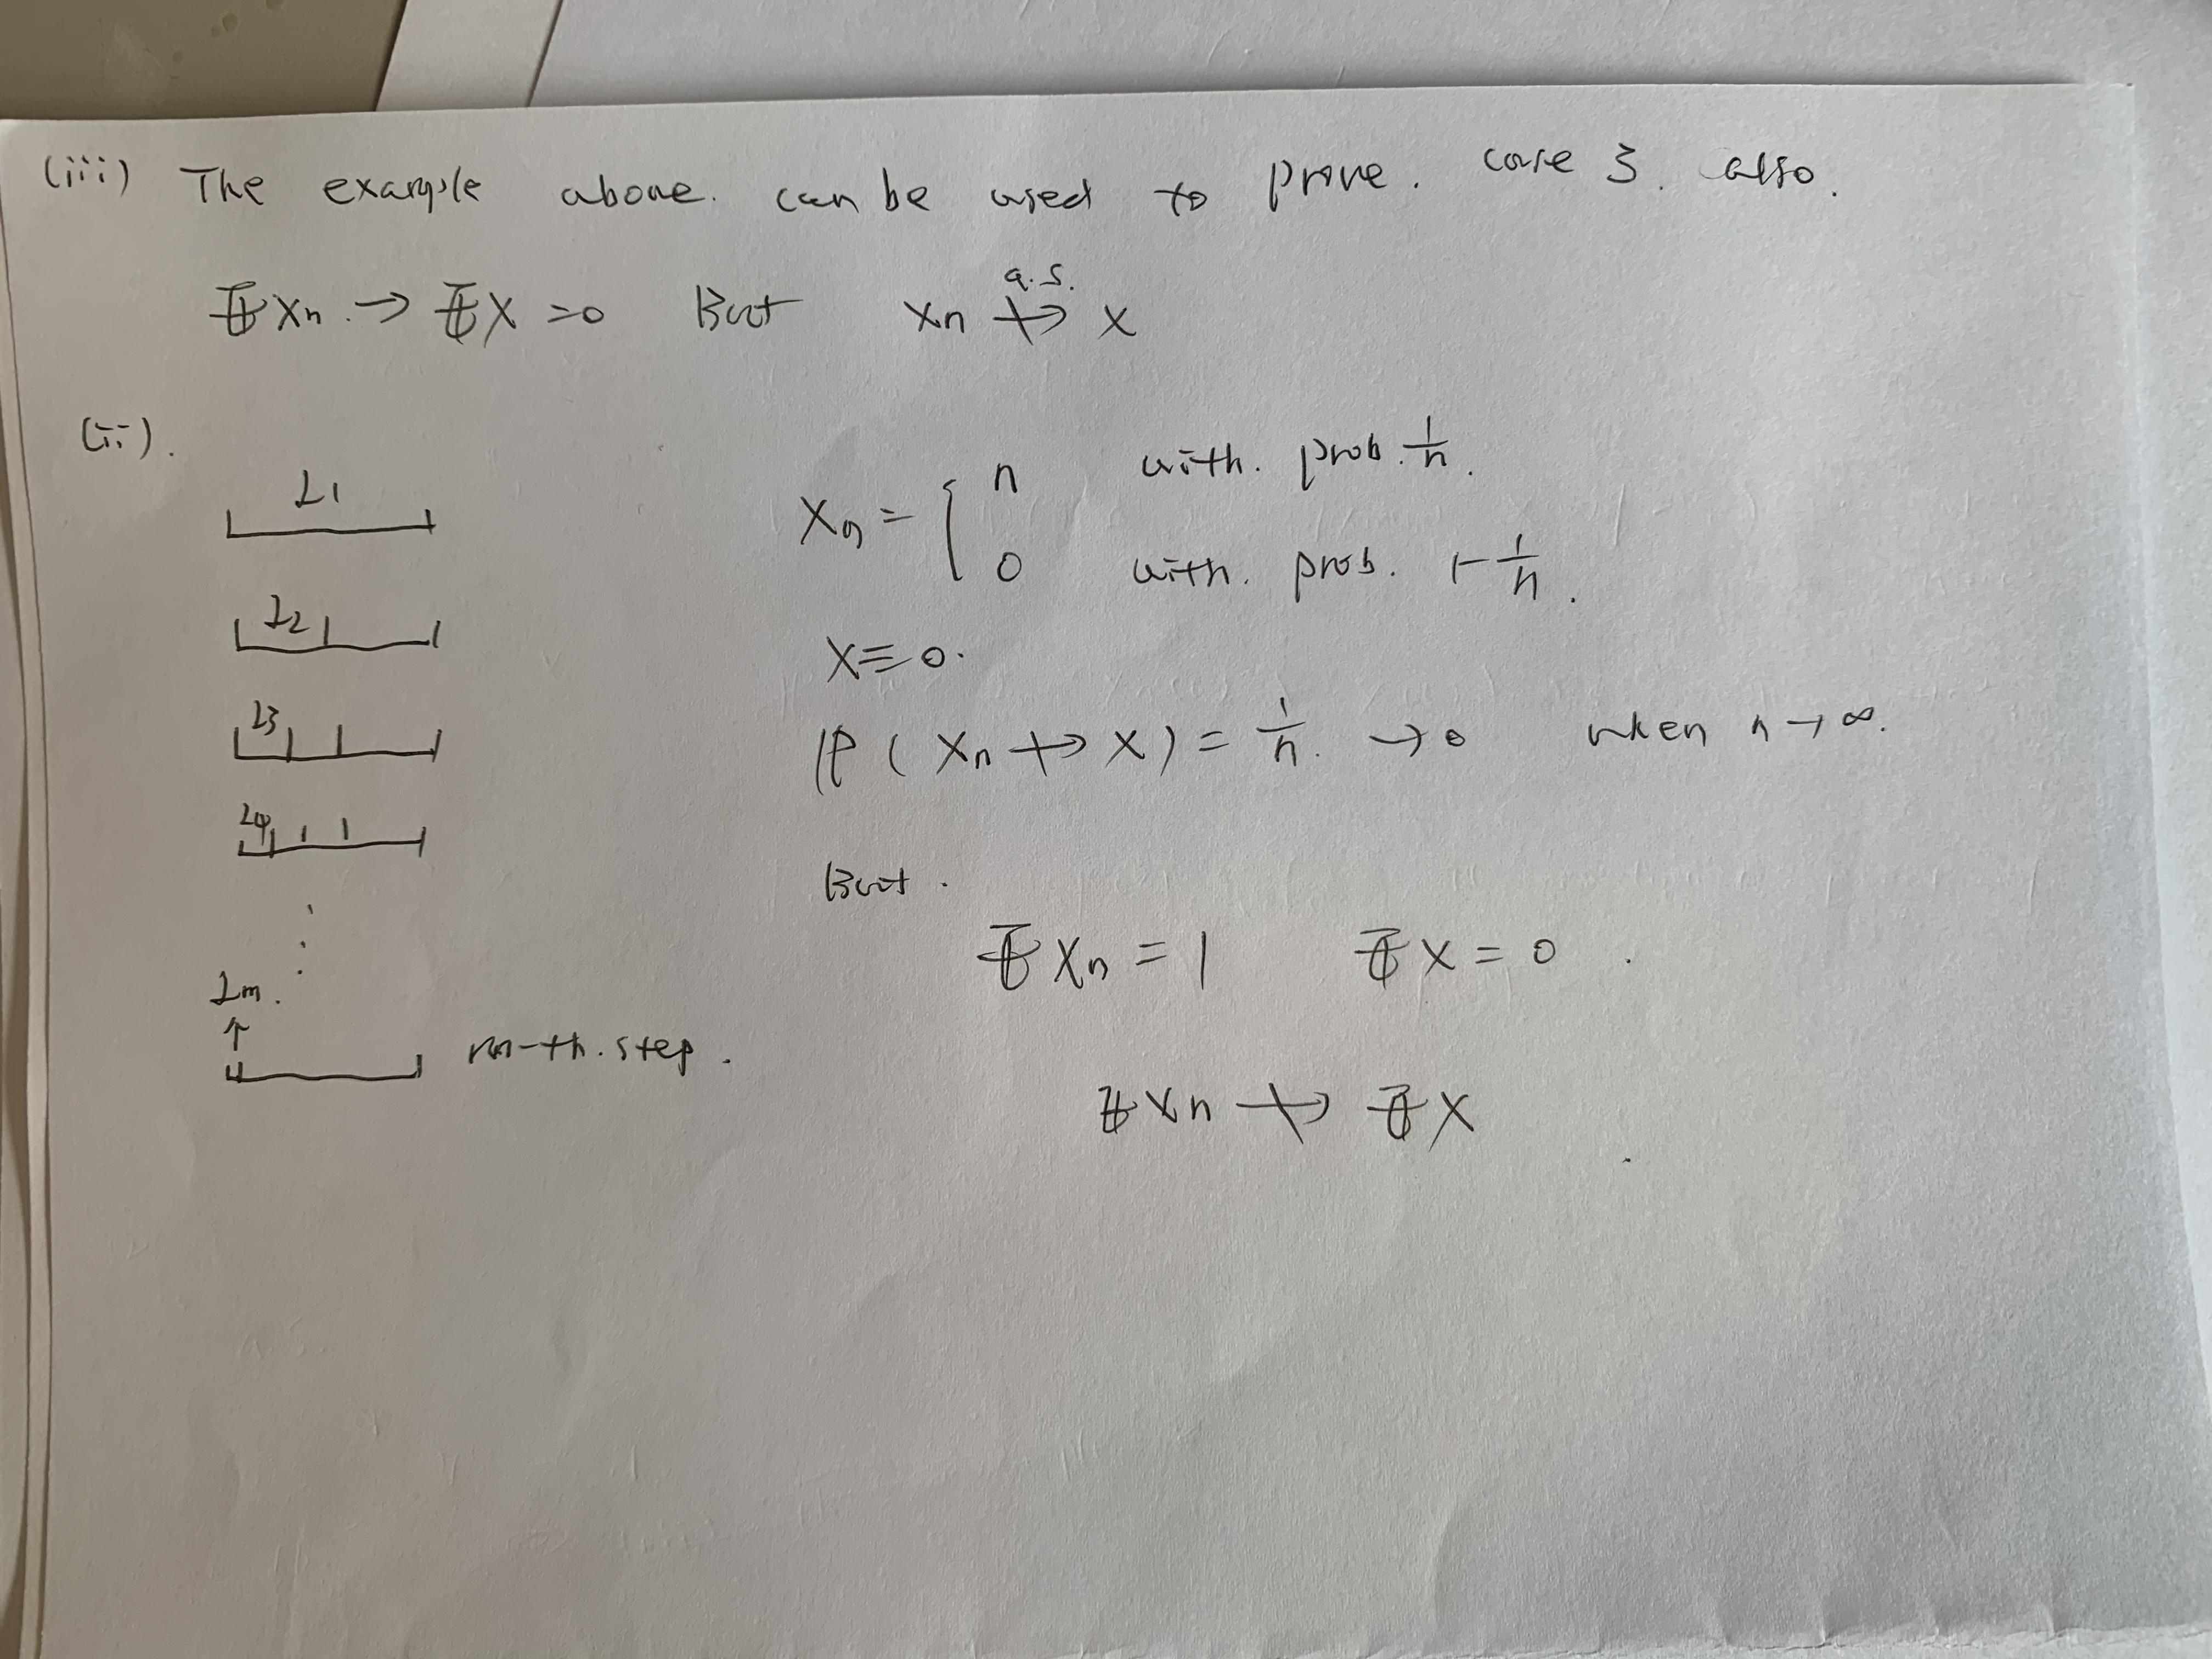 (iii) The example above. can be used to prove. case 3. also.
𝔼Xn. → 𝔼X =0 But Xn ↛ a.s. X
(ii).
I1
I2
I3
I4
⋮
Im.
↑
m-th. step.
Xn = { n with. prob. 1/n.
0 with. prob. 1-1/n.
X≡0.
ℙ(Xn ↛ X) = 1/n. → 0 when n → ∞.
But.
𝔼Xn = 1 𝔼X = 0.
𝔼Xn ↛ 𝔼X